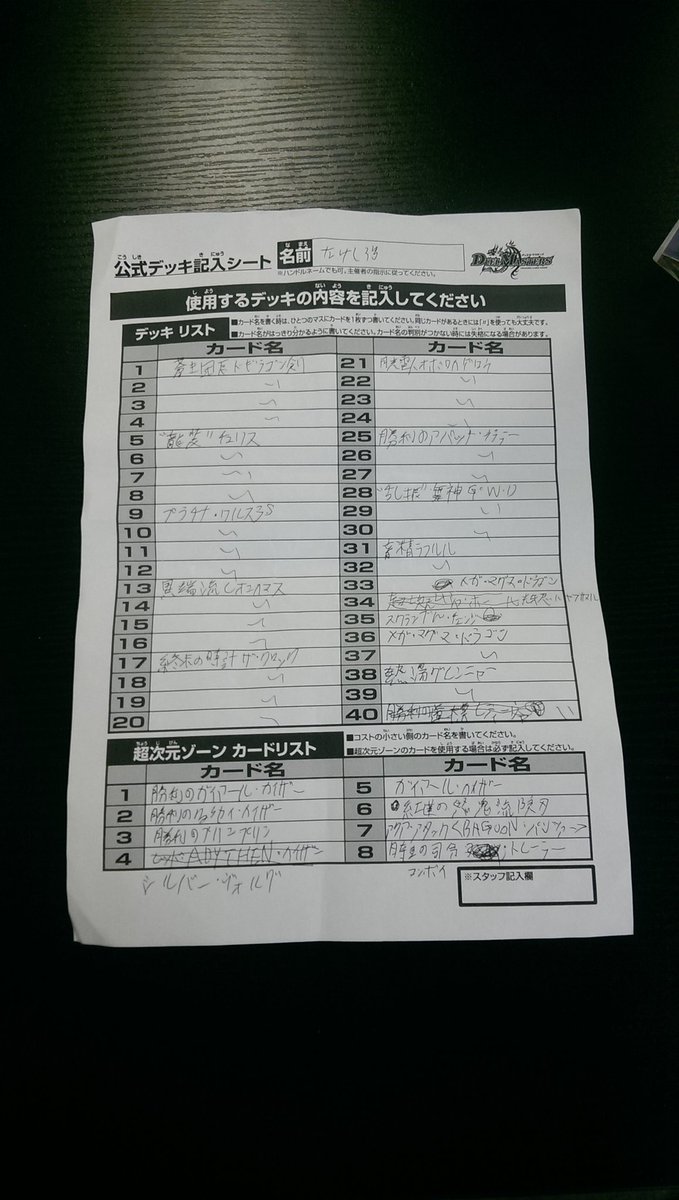 こうしき きにゅう
公式デッキ記入シート
なまえ
名前 たけし3号
※ハンドルネームでも可。主催者の指示に従ってください。
DUEL MASTERS
しよう ないよう きにゅう
使用するデッキの内容を記入してください
デッキ リスト
■カード名を書く時は、ひとつのマスにカードを1枚ずつ書いてください。同じカードがあるときには「〃」を使っても大丈夫です。
■カード名がはっきり分かるように書いてください。カード名の判別がつかない時には失格になる場合があります。
カード名
1
2 〃
3 〃
4 〃
5 "龍装"チュリス
6 〃
7 〃
8 〃
9 プラチナ・ワルスラS
10 〃
11 〃
12 〃
13 異端流しオニカマス
14 〃
15 〃
16 〃
17 終末の時計 ザ・クロック
18 〃
19 〃
20 〃
カード名
21
22 〃
23 〃
24 〃
25 勝利のアパッチ・
26 〃
27 〃
28 舞神 G・W・D
29 〃
30 〃
31 音精ラフルル
32 〃
33 メガ・マグマ・ドラゴン
34
35 スクランブル・チェンジ
36 メガ・マグマ・ドラゴン
37 〃
38 熱湯グレンニャー
39 〃
40 〃
超次元ゾーン カードリスト
■コストの小さい側のカード名を書いてください。
■超次元ゾーンのカードを使用する場合は必ず記入してください。
カード名
1 勝利のガイアール・カイザー
2 勝利のリュウセイ・カイザー
3 勝利のプリンプリン
4 LADYTHEN・カイザー
シルバー・ヴォルグ
カード名
5 ガイアール・カイザー
6 紅蓮の怒 鬼流院 刃
7 アクア・アタック〈BAGOON・パンツァー〉
8 時空の司令 コンボイ・トレーラー
※スタッフ記入欄